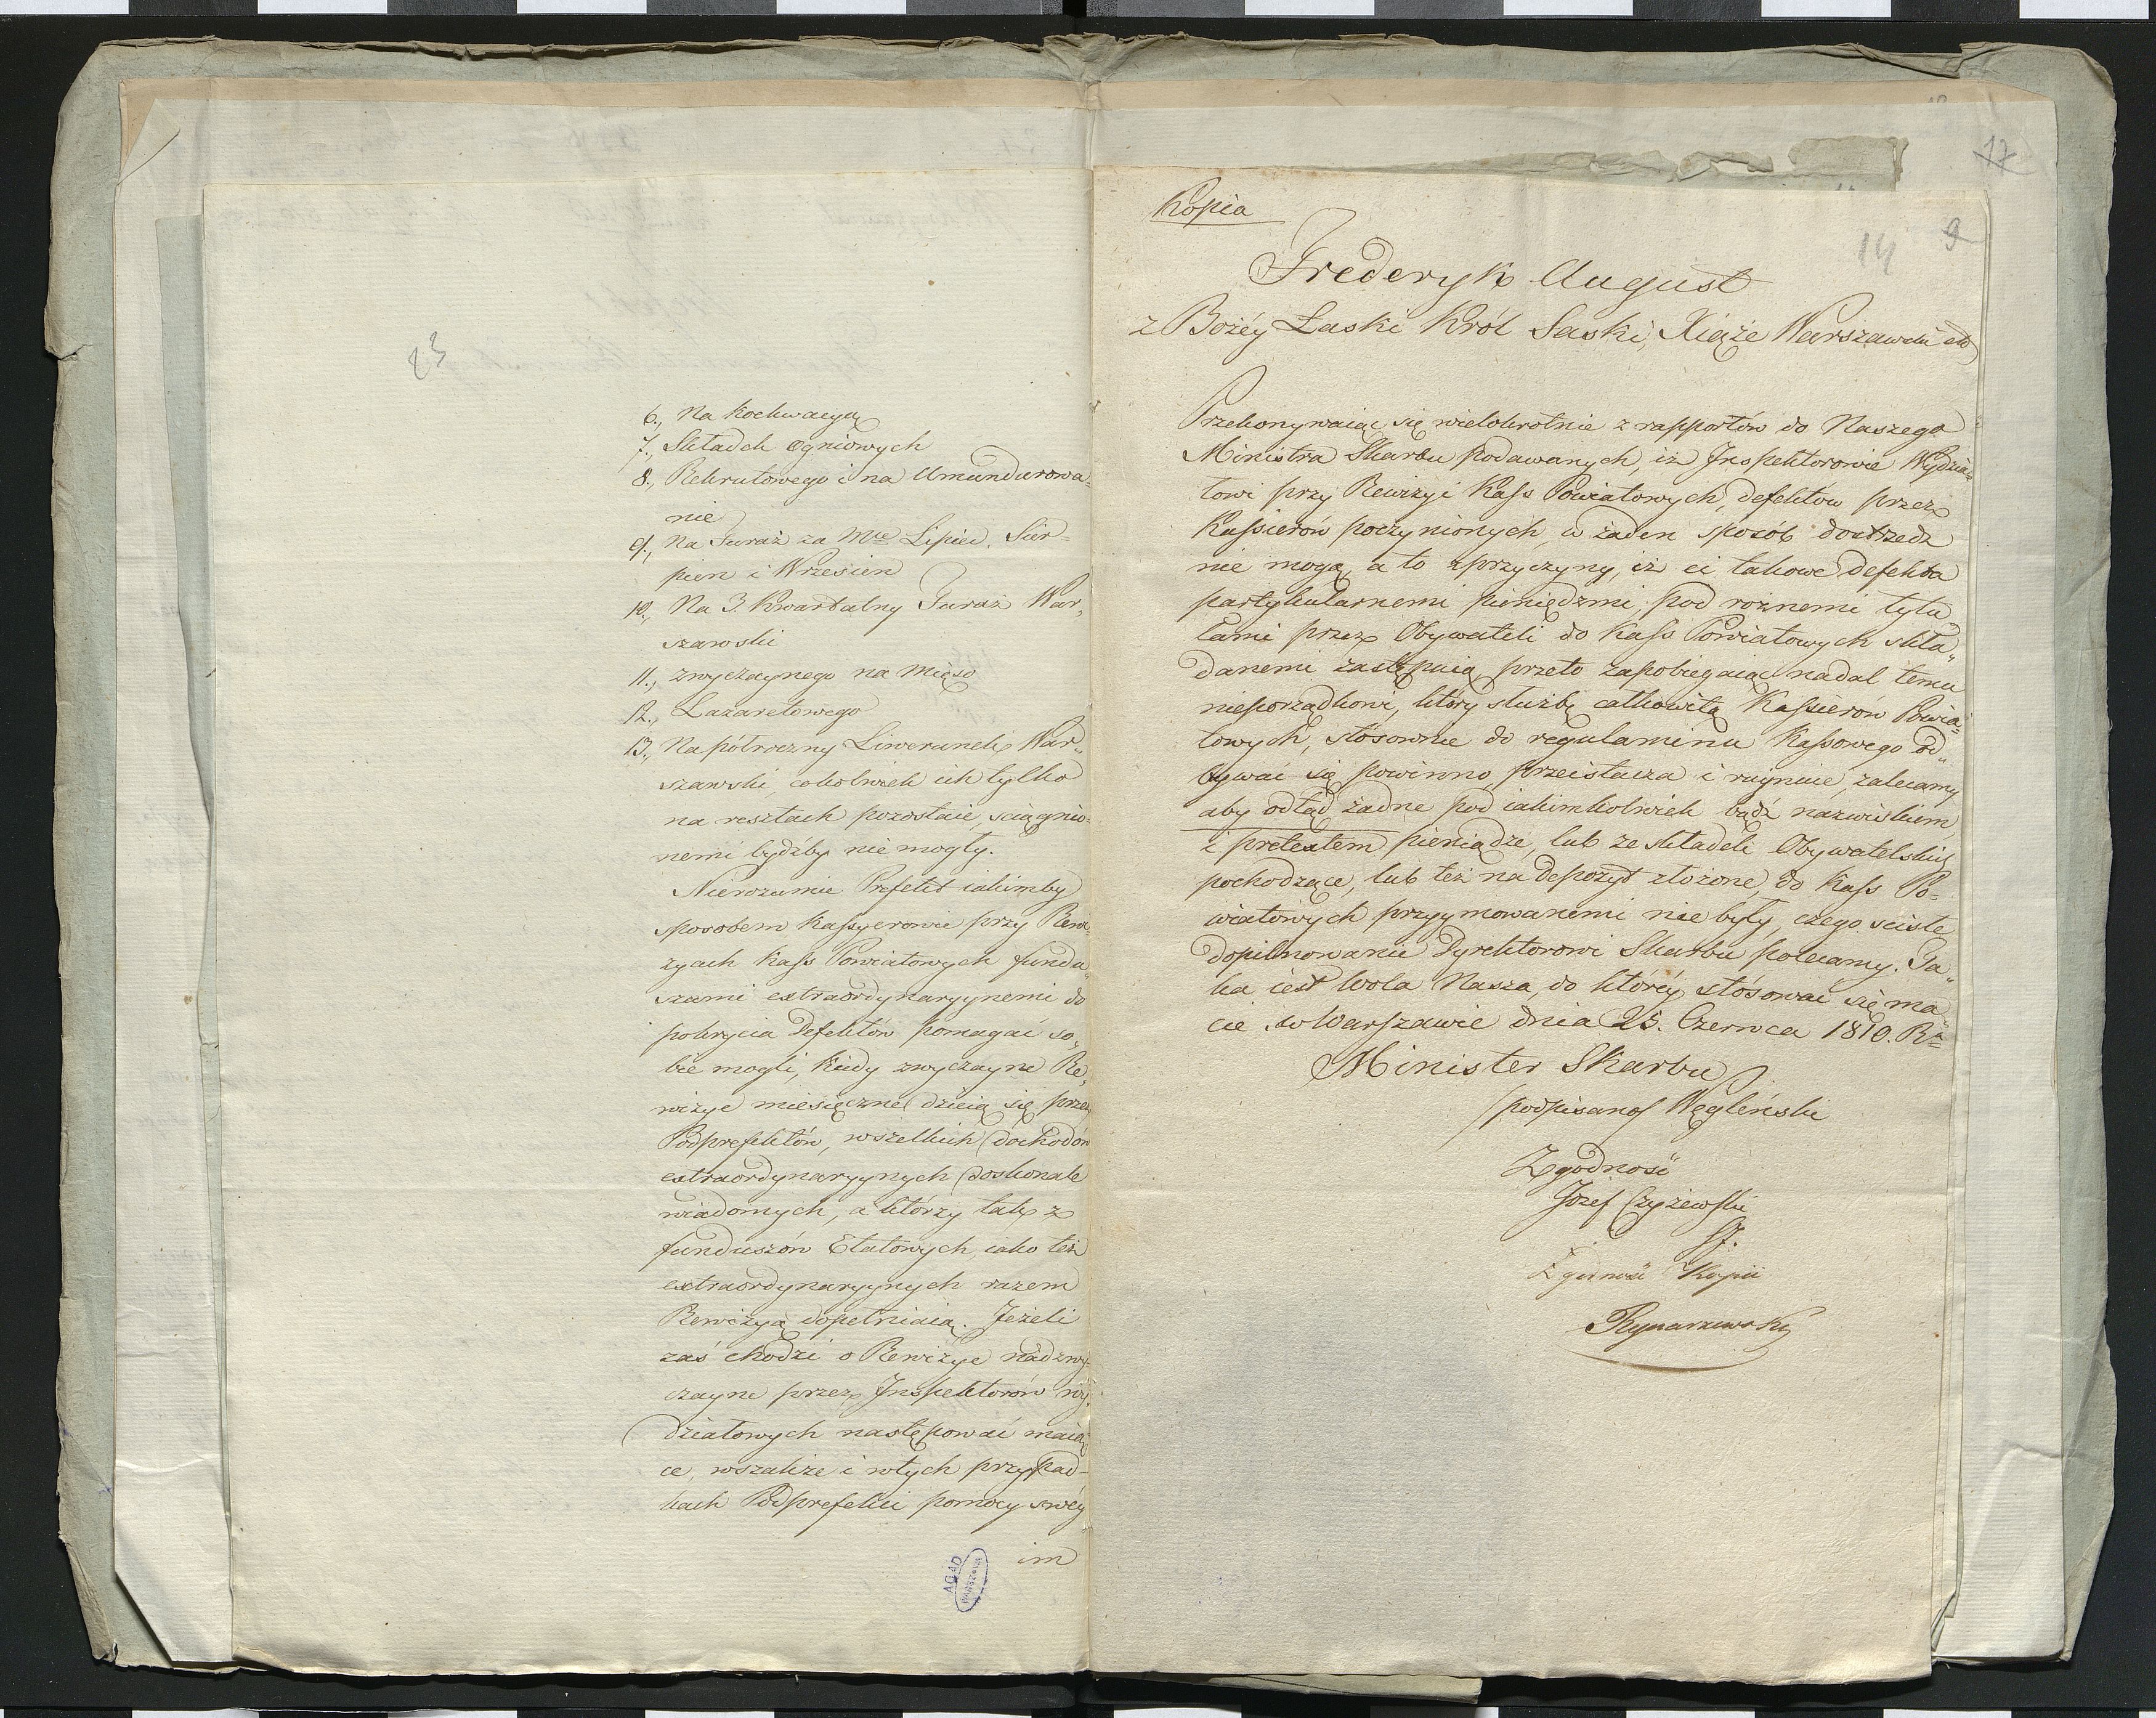 23
6., Na Kochwacyą
7., Składek Ogniowych
8., Rekrutowego i na Umundurowa-
nie
9., Na Furaż za Mce Lipiec, Sier-
pien i Wrzesien
10., Na 3. Kwartalny Furaż War-
szawski
11., zwyczaynego na Mięso
12., Lazaretowego
13., Na półroczny Liwerunek War-
szawski, cokolwiek ich tylko
na resztach pozostaie, sciągnio-
nemi bydźby nie mogły.
Nierozumie Prefekt iakimby
sposobem Kassyerowie przy Rewi-
zyach Kass Powiatowych fundu-
szami extraordynaryynemi do
pokrycia Defektów pomagać so-
bie mogli, Kiedy zwyczayne Re-
wizye miesięczne dzieią się przez
Podprefektów, wszelkich dochodów
extraordynaryynych doskonale
wiadomych, a którzy tak z
funduszów Etatowych, iako też
extraordynaryynych razem
Rewizyą dopełniaią. Jeżeli
zaś chodzi o Rewizye nadzwy-
czayne przez Inspektorów wy-
działowych następować maią-
ce, wszakże i wtych przypad-
kach Podprefekci pomocy swéy
im
AGAD
WARSZAWA
17
Kopia
14 9
Frederyk August
z Bożéy Łaski Król Saski, Xiąże Warszawski etc
Przekonywaiąc się wielokrotnie z rapportów do Naszego
Ministra Skarbu podawanych, iż Inspektorowie Wydzia-
łowi przy Rewizyi Kass Powiatowych, defektów przez
Kassierów poczynionych, w żaden sposób dostrzedz
nie mogą, a to z przyczyny, iż ci takowe defekta
partykularnemi pieniędzmi, pod rożnemi tytu-
łami przez Obywateli do Kass Powiatowych skła-
danemi zastępuią, przeto zapobiegaiąc nadal temu
nieporządkowi, który służbę całkowitą Kassierów Powia-
towych, stósownie do regulaminu Kassowego od-
bywać się powinno, przeistacza i ruynuie, zalecamy
aby odtąd żadne pod iakimkolwiek bądź nazwiskiem
i pretextem pieniądze, lub ze składek Obywatelskich
pochodzące, lub też na depozyt złożone, do Kass Po-
wiatowych przyymowanemi nie były, czego sciśle
dopilnowanie Dyrektorowi Skarbu polecamy. Ta-
ka iest Wola Nasza, do któréy stósować się ma-
cie. w Warszawie dnia 25. Czerwca 1810. Rª
Minister Skarbu
/podpisano/ Węgleński
Zgodność
Józef Czyżewski
Zgodność Kopii
Rymarzewski